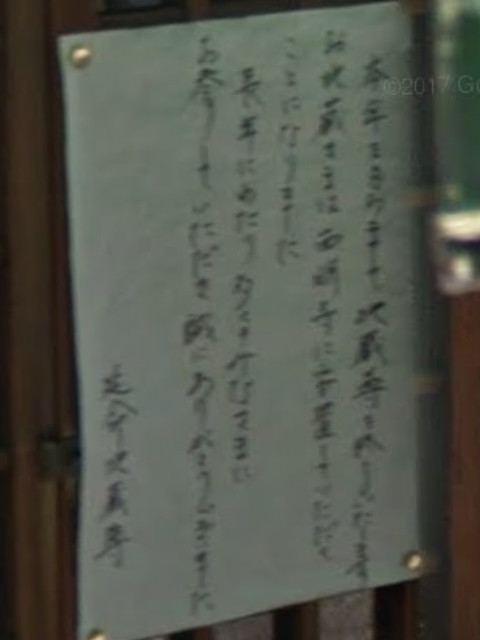 本年をもちまして地蔵寺を
お地蔵さまは西明寺に安置していただく
ことになりました
長年にわたり みなさま
お参りいただき 誠にありがとうございました
延命地蔵寺
©2017 Go